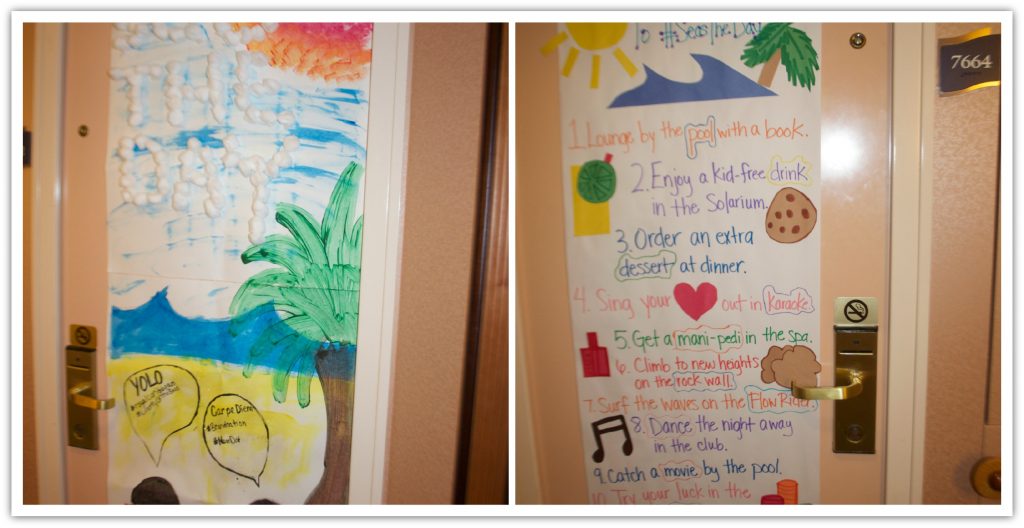 THE
DAY
YOLO
Carpe Diem
7664
To #SeasTheDay
1. Lounge by the pool with a book.
2. Enjoy a kid-free drink
in the Solarium.
3. Order an extra
dessert at dinner.
4. Sing your out in Karaoke.
5. Get a mani-pedi in the spa.
6. Climb to new heights
on the rock wall.
7. Surf the waves on the Flow Rider.
8. Dance the night away
in the club.
9. Catch a movie by the pool.
10. Try your luck in the